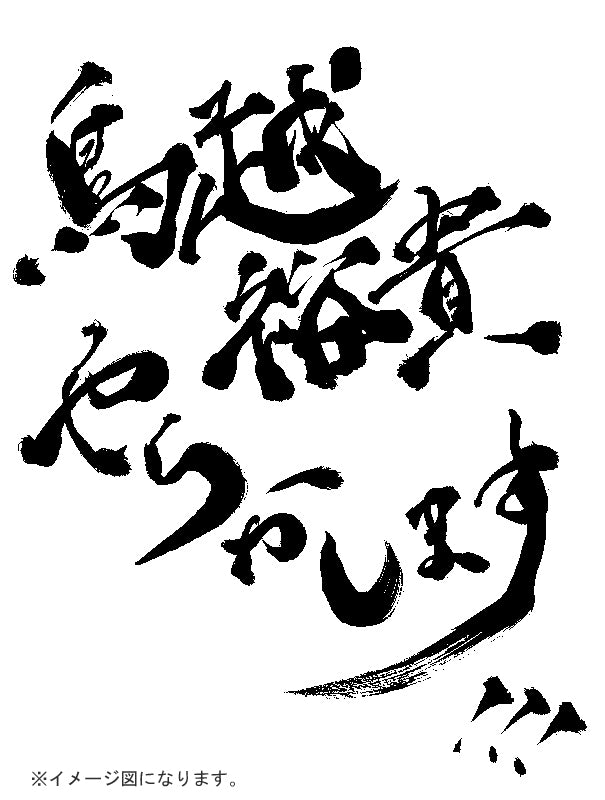 鳥越
裕貴
やらかします
!!!
※イメージ図になります。